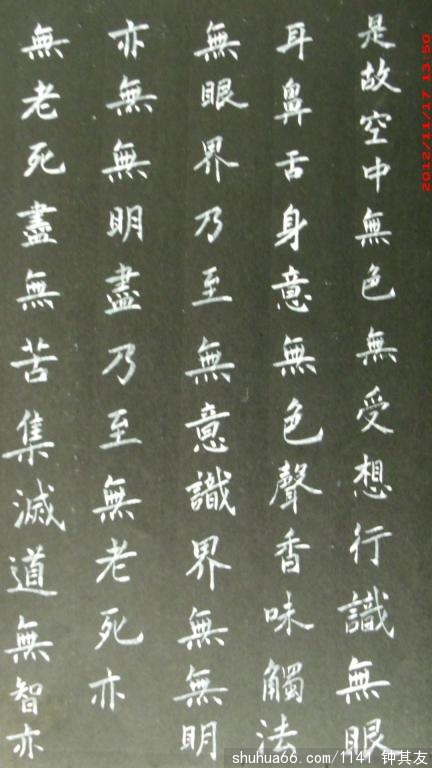 是故空中無色無受想行識無眼
耳鼻舌身意無色聲香味觸法
無眼界乃至無意識界無無明
亦無無明盡乃至無老死亦
無老死盡無苦集滅道無智亦
2012/11/17 13:50
shuhua66.com/1141 钟其友